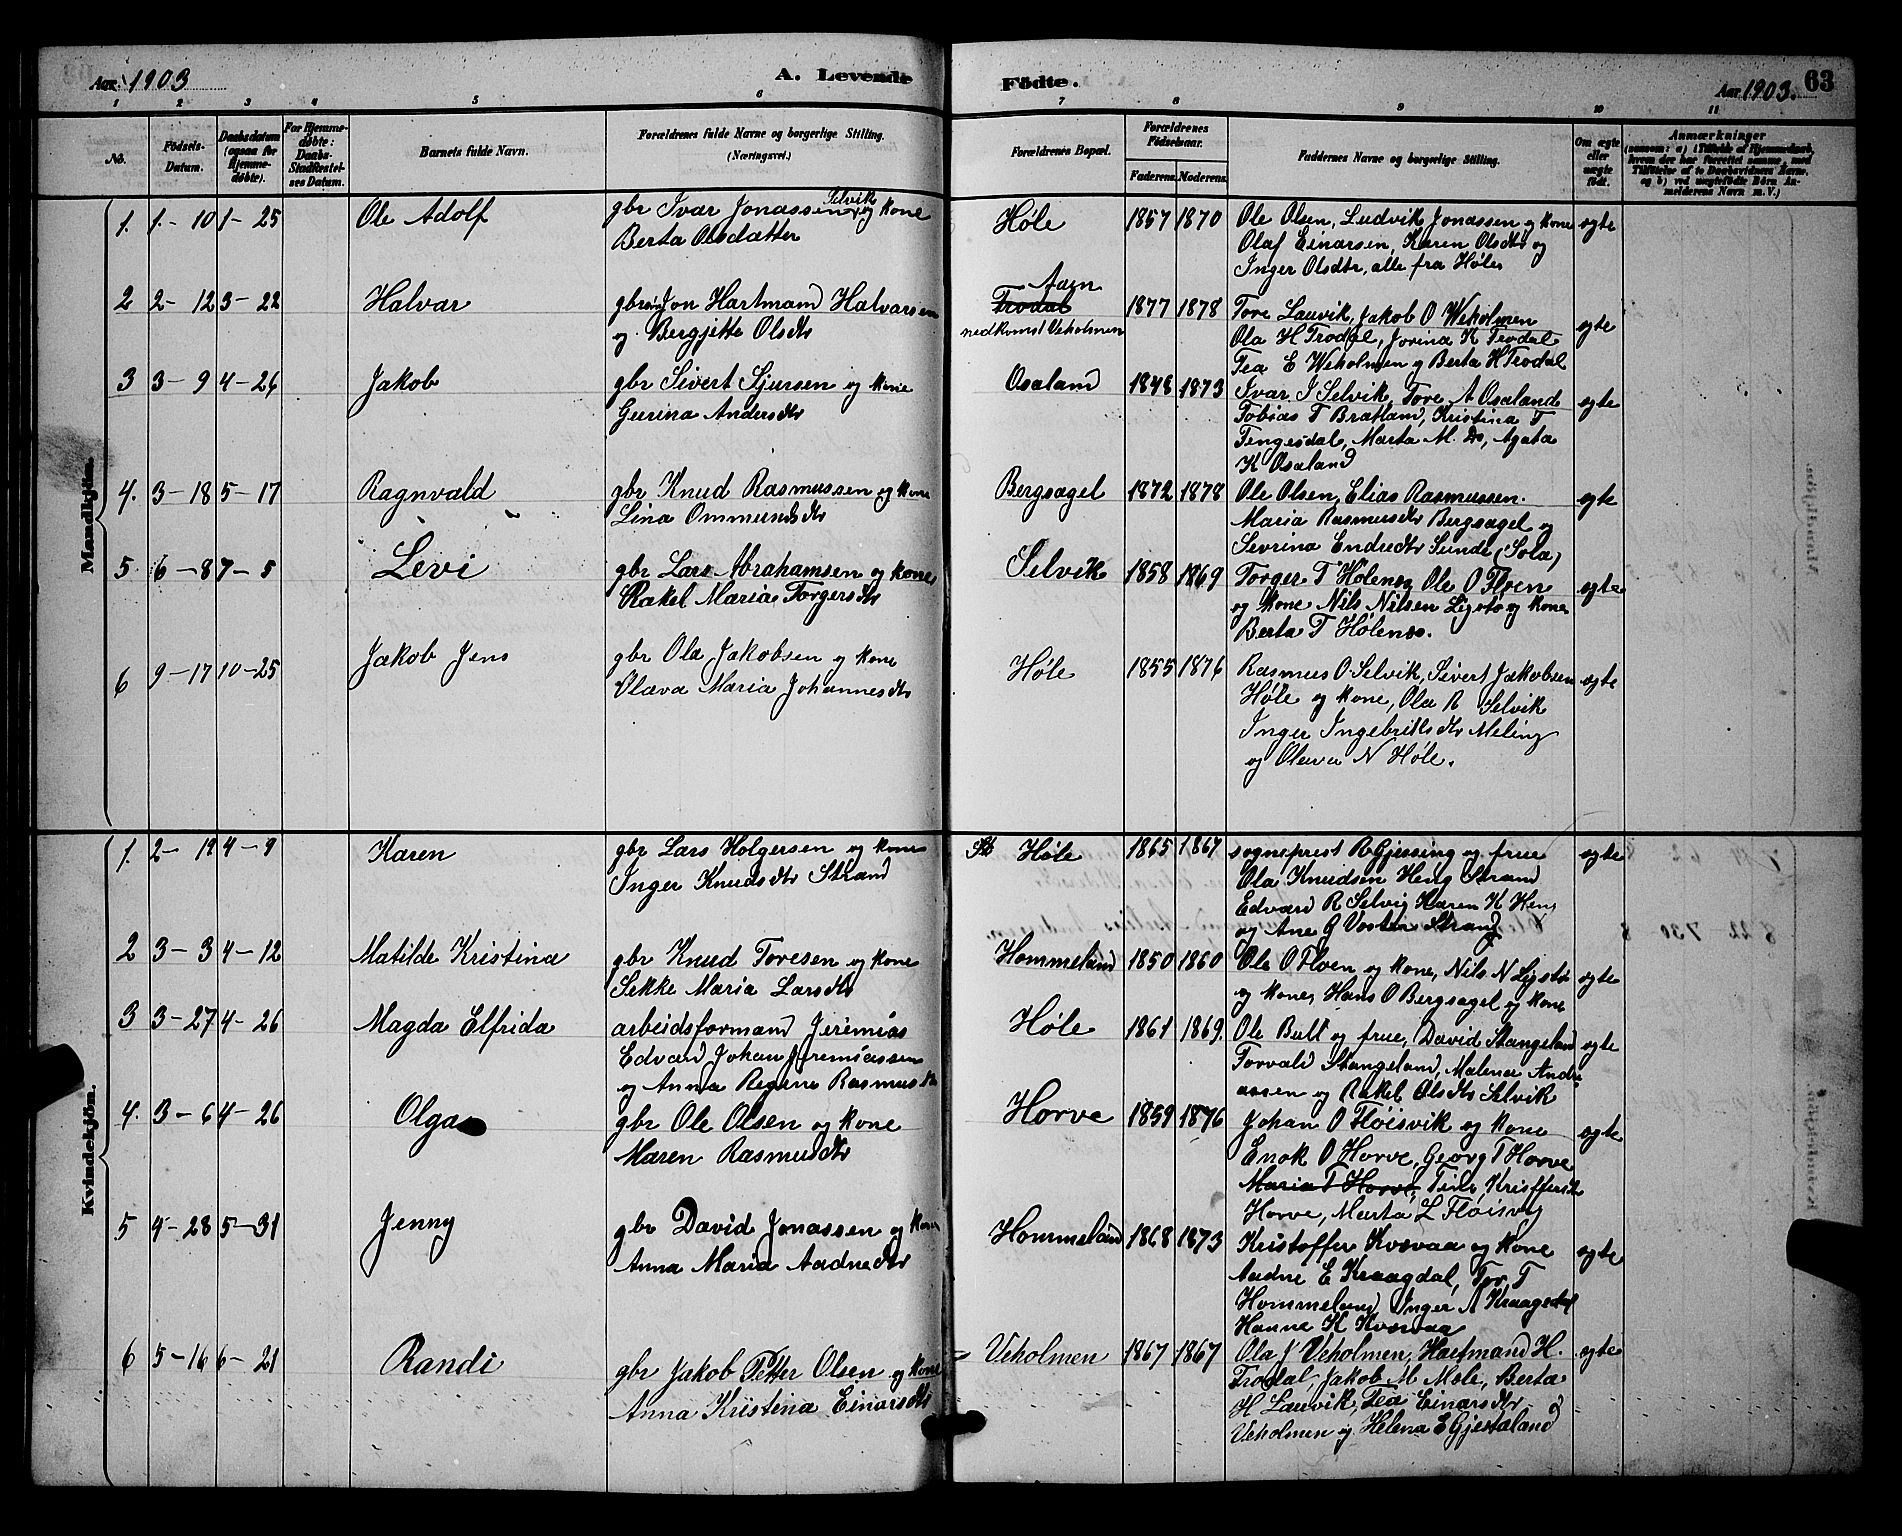 Aar 1903
A. Levende
Födte.
Aar 1903. 63
1 2 3 4 5 6 7 8 9 10 11
No.
Födsels-Datum.
Daabsdatum (ogsaa for Hjemme-döbte).
For Hjemme-döbte: Daabs-Stadfæstel-ses Datum.
Barnets fulde Navn.
Forældrenes fulde Navne og borgerlige Stilling. (Næringsvei.)
Forældrenes Bopæl.
Forældrenes Födselsaar.
Faderens. Moderens.
Faddernes Navne og borgerlige Stilling.
Om ægte eller uægte födt.
Anmærkninger
(saasom: a) i Tilfælde af Hjemmedaab, hvem der har forrettet samme, med Tilföielse af to Daabsvidners Navne, og b) ved uægtefödte Börn An-melderens Navn m. V.)
Mandkjön.
1. 1-10 1-25 Ole Adolf gbr Ivar Jonassen Selvik og kone Høle 1857 1870 Ole Olsen, Ludvik Jonassen og kone egte
Berta Olsdatter
Olaf Einarsen, Karen Olsdtr og
Inger Olsdtr, alle fra Høle
2 2-12 3-22 Halvar gbrs Jon Hartmand Halvarsen Aarn 1877 1878 Tore Lauvik, Jakob O Weholmen egte
og Bergjette Olsdtr
Trodal
nedkomst Veholmen
Ola H Trodal, Jorina K Trodal
Tea E Weholmen og Berta H Trodal
3 3-9 4-26 Jakob gbr Sivert Sjursen og kone Osaland 1848 1873 Ivar J Selvik, Tore A Osaland egte
Gurina Andersdtr
Tobias T Bratland, Kristina T
Tengesdal, Marta M. Do, Agata
K Osaland
4. 3-18 5-17 Ragnvald gbr Knud Rasmussen og kone Bergsagel 1872 1878 Ole Olsen, Elias Rasmussen. egte
Lina Ommundsdtr
Maria Rasmusdtr Bergsagel og
Sevrina Endredtr Sunde (Sola)
5 6-8 7-5 Levi gbr Lars Abrahamsen og kone Selvik 1858 1869 Torger T Holenes Ole O Floen egte
Rakel Maria Torgersdtr
og kone Nils Nilsen Ligsto og kone
Berta T Hølenes.
6 9-17 10-25 Jakob Jens gbr Ola Jakobsen og kone Høle 1855 1876 Rasmus O Selvik, Sivert Jakobsen egte
Olava Maria Johannesdtr
Høle og kone, Ola R Selvik
Inger Ingebrittsdtr Meling
og Olava N Høle.
Kvindekjön.
1. 2-19 4-9 Karen gbr Lars Holgersen og kone Høle 1865 1867 sogneprest R Gjessing og frue egte
Inger Knudsdtr Strand
Ola Knudsen Heng Strand
Edvard R Selvig Karen K Heng
og Ane G Strand
2 3-3 4-12 Matilde Kristina gbr Knud Toresen og kone Hommeland 1850 1860 Ole O Floen og kone, Nils N Ligsto egte
Sekke Maria Larsdtr
og kone, Hans O Bergsagel og kone
3 3-27 4-26 Magda Elfrida arbeidsformand Jeremias Høle 1861 1869. Ole Bull og frue, David Stangeland egte
Edvard Johan Jeremiassen
og Anna Regine Rasmusdtr
Torvald Stangeland, Malena Andre
assen og Rakel Olsdtr Selvik
4. 3-6 4-26 Olga gbr Ole Olsen og kone Horve 1859 1876 Johan O Fløisvik og kone egte
Maren Rasmusdtr
Enok O Horve, Georg T Horve
Maria T Horve, Kristoffersdtr
Horve, Marta L Fløisvig
5 4-28 5-31 Jenny gbr David Jonassen og kone Hommeland 1868 1873 Kristoffer Kvævaa og kone egte
Anna Maria Aadnedtr
Aadne E Kraagdal, Tor T
Hommeland Inger A Kraagedal
Hanne K Kvævaa
6 5-16 6-21 Randi gbr Jakob Petter Olsen og kone Veholmen 1867 1867 Ola J Veholmen, Hartmand H. egte
Anna Kristina Einarsdtr
Trodal, Jakob M Mele, Berta
H Lauvik, Tea Einarsdtr
Veholmen og Helena E Gjesteland